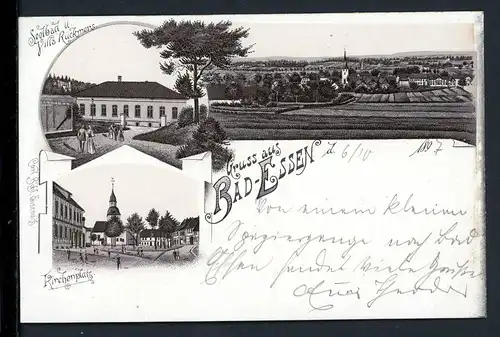 Soolbad u.
Villa Rückmens
Gruss aus
BAD-ESSEN d. 6/10 1897
Von einem kleinen
Spaziergange nach Bad
Essen sendet viele Grüße
Euer Theodor
Kirchenplatz